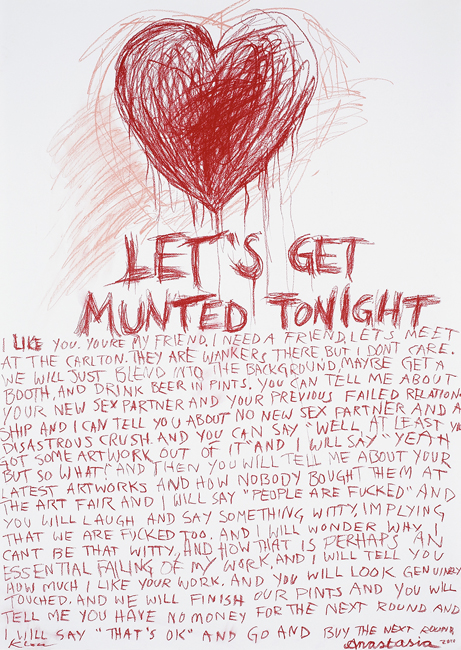 LET'S GET
MUNTED TONIGHT
I LIKE YOU. YOU'RE MY FRIEND. I NEED A FRIEND. LETS MEET
AT THE CARLTON. THEY ARE WANKERS THERE, BUT I DONT CARE.
WE WILL JUST BLEND INTO THE BACKGROUND, MAYBE GET A
BOOTH, AND DRINK BEER IN PINTS. YOU CAN TELL ME ABOUT
YOUR NEW SEX PARTNER AND YOUR PREVIOUS FAILED RELATION
SHIP AND I CAN TELL YOU ABOUT NO NEW SEX PARTNER AND A
DISASTROUS CRUSH. AND YOU CAN SAY "WELL, AT LEAST YOU
GOT SOME ARTWORK OUT OF IT" AND I WILL SAY "YEAH
BUT SO WHAT" AND THEN YOU WILL TELL ME ABOUT YOUR
LATEST ARTWORKS AND HOW NOBODY BOUGHT THEM AT
THE ART FAIR AND I WILL SAY "PEOPLE ARE FUCKED" AND
YOU WILL LAUGH AND SAY SOMETHING WITTY, IMPLYING
THAT WE ARE FUCKED TOO. AND I WILL WONDER WHY I
CANT BE THAT WITTY, AND HOW THAT IS PERHAPS AN
ESSENTIAL FAILING OF MY WORK, AND I WILL TELL YOU
HOW MUCH I LIKE YOUR WORK. AND YOU WILL LOOK GENUINELY
TOUCHED. AND WE WILL FINISH OUR PINTS AND YOU WILL
TELL ME YOU HAVE NO MONEY FOR THE NEXT ROUND AND
I WILL SAY "THAT'S OK" AND GO AND BUY THE NEXT ROUND.
Klose Anastasia 2010